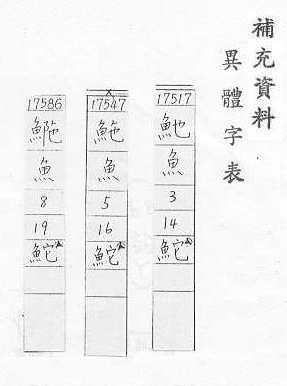 補充資料
異體字表
17517
魚
3
14
鮀
17547
魚
5
16
鮀
17586
魚
8
19
鮀